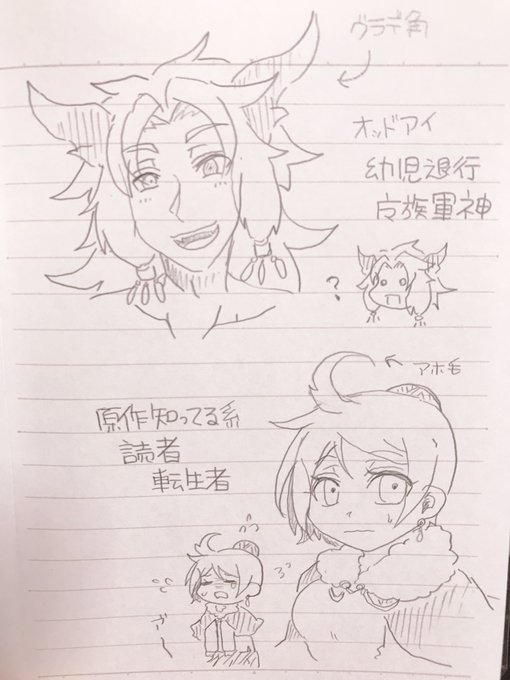 ヴラデ角
オッドアイ
幼児退行
皮族軍神
?
アホ毛
原作知ってる系
読者
転生者